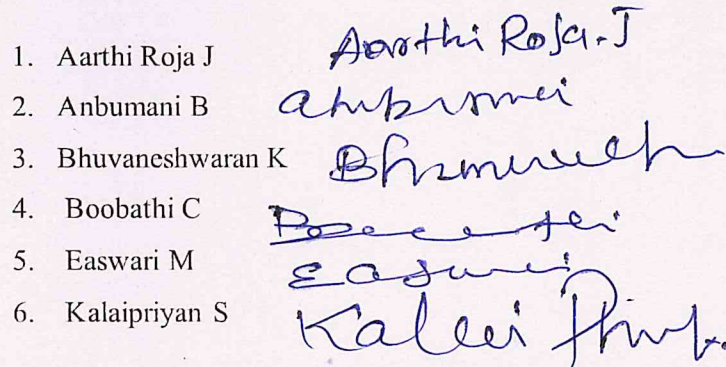 1. Aarthi Roja J Aarthi Roja.J
2. Anbumani B Anbumani
3. Bhuvaneshwaran K
4. Boobathi C
5. Easwari M Easwari
6. Kalaipriyan S Kalai